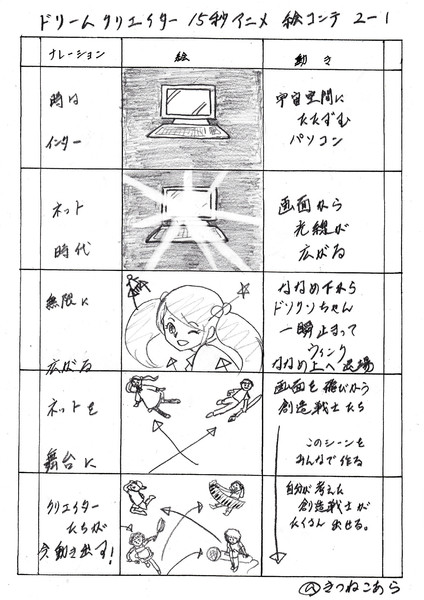 ドリームクリエイター 15秒アニメ 絵コンテ 2-1
ナレーション
絵
動き
時は
インター
宇宙空間に
たたずむ
パソコン
ネット
時代
画面から
光線が
広がる
無限に
広がる
ななめ下から
ドリクリちゃん
一瞬止まって
ウィンク
ななめ上へ退場
ネットを
舞台に
画面を飛びかう
創造戦士たち
このシーンを
みんなで作る
クリエイター
たちが
今、動き出す!
自分が考えた
創造戦士が
たくさん出せる。
きつねこあら